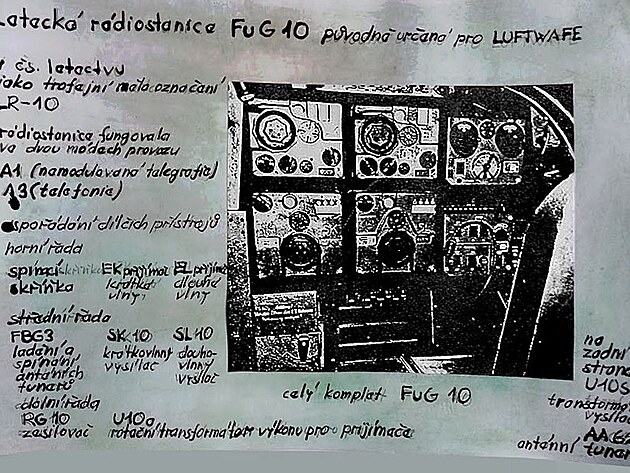 Letecká rádiostanice FuG 10 původně určená pro LUFTWAFE
V čs. letectvu
jako trofejní měla označení
LR-10
rádiostanice fungovala
ve dvou módech provozu
A1 (namodulovaná telegrafie)
A3 (telefonie)
uspořádání dílčích přístrojů
horní řada
spínací skříňka EK přijímač EL přijímač
skříňka krátké dlouhé
vlny vlny
střední řada
FBG3 SK10 SL10
ladění a krátkovlnný dlouho-
spínání vysílač vlnný
anténních vysílač
tunerů
dolní řada
RG 10 U10a
zesilovač rotační transformátor výkonu pro přijímače
celý komplet FuG 10
na
zadní
straně
U10S
transformátor
vysílač
anténní tuner